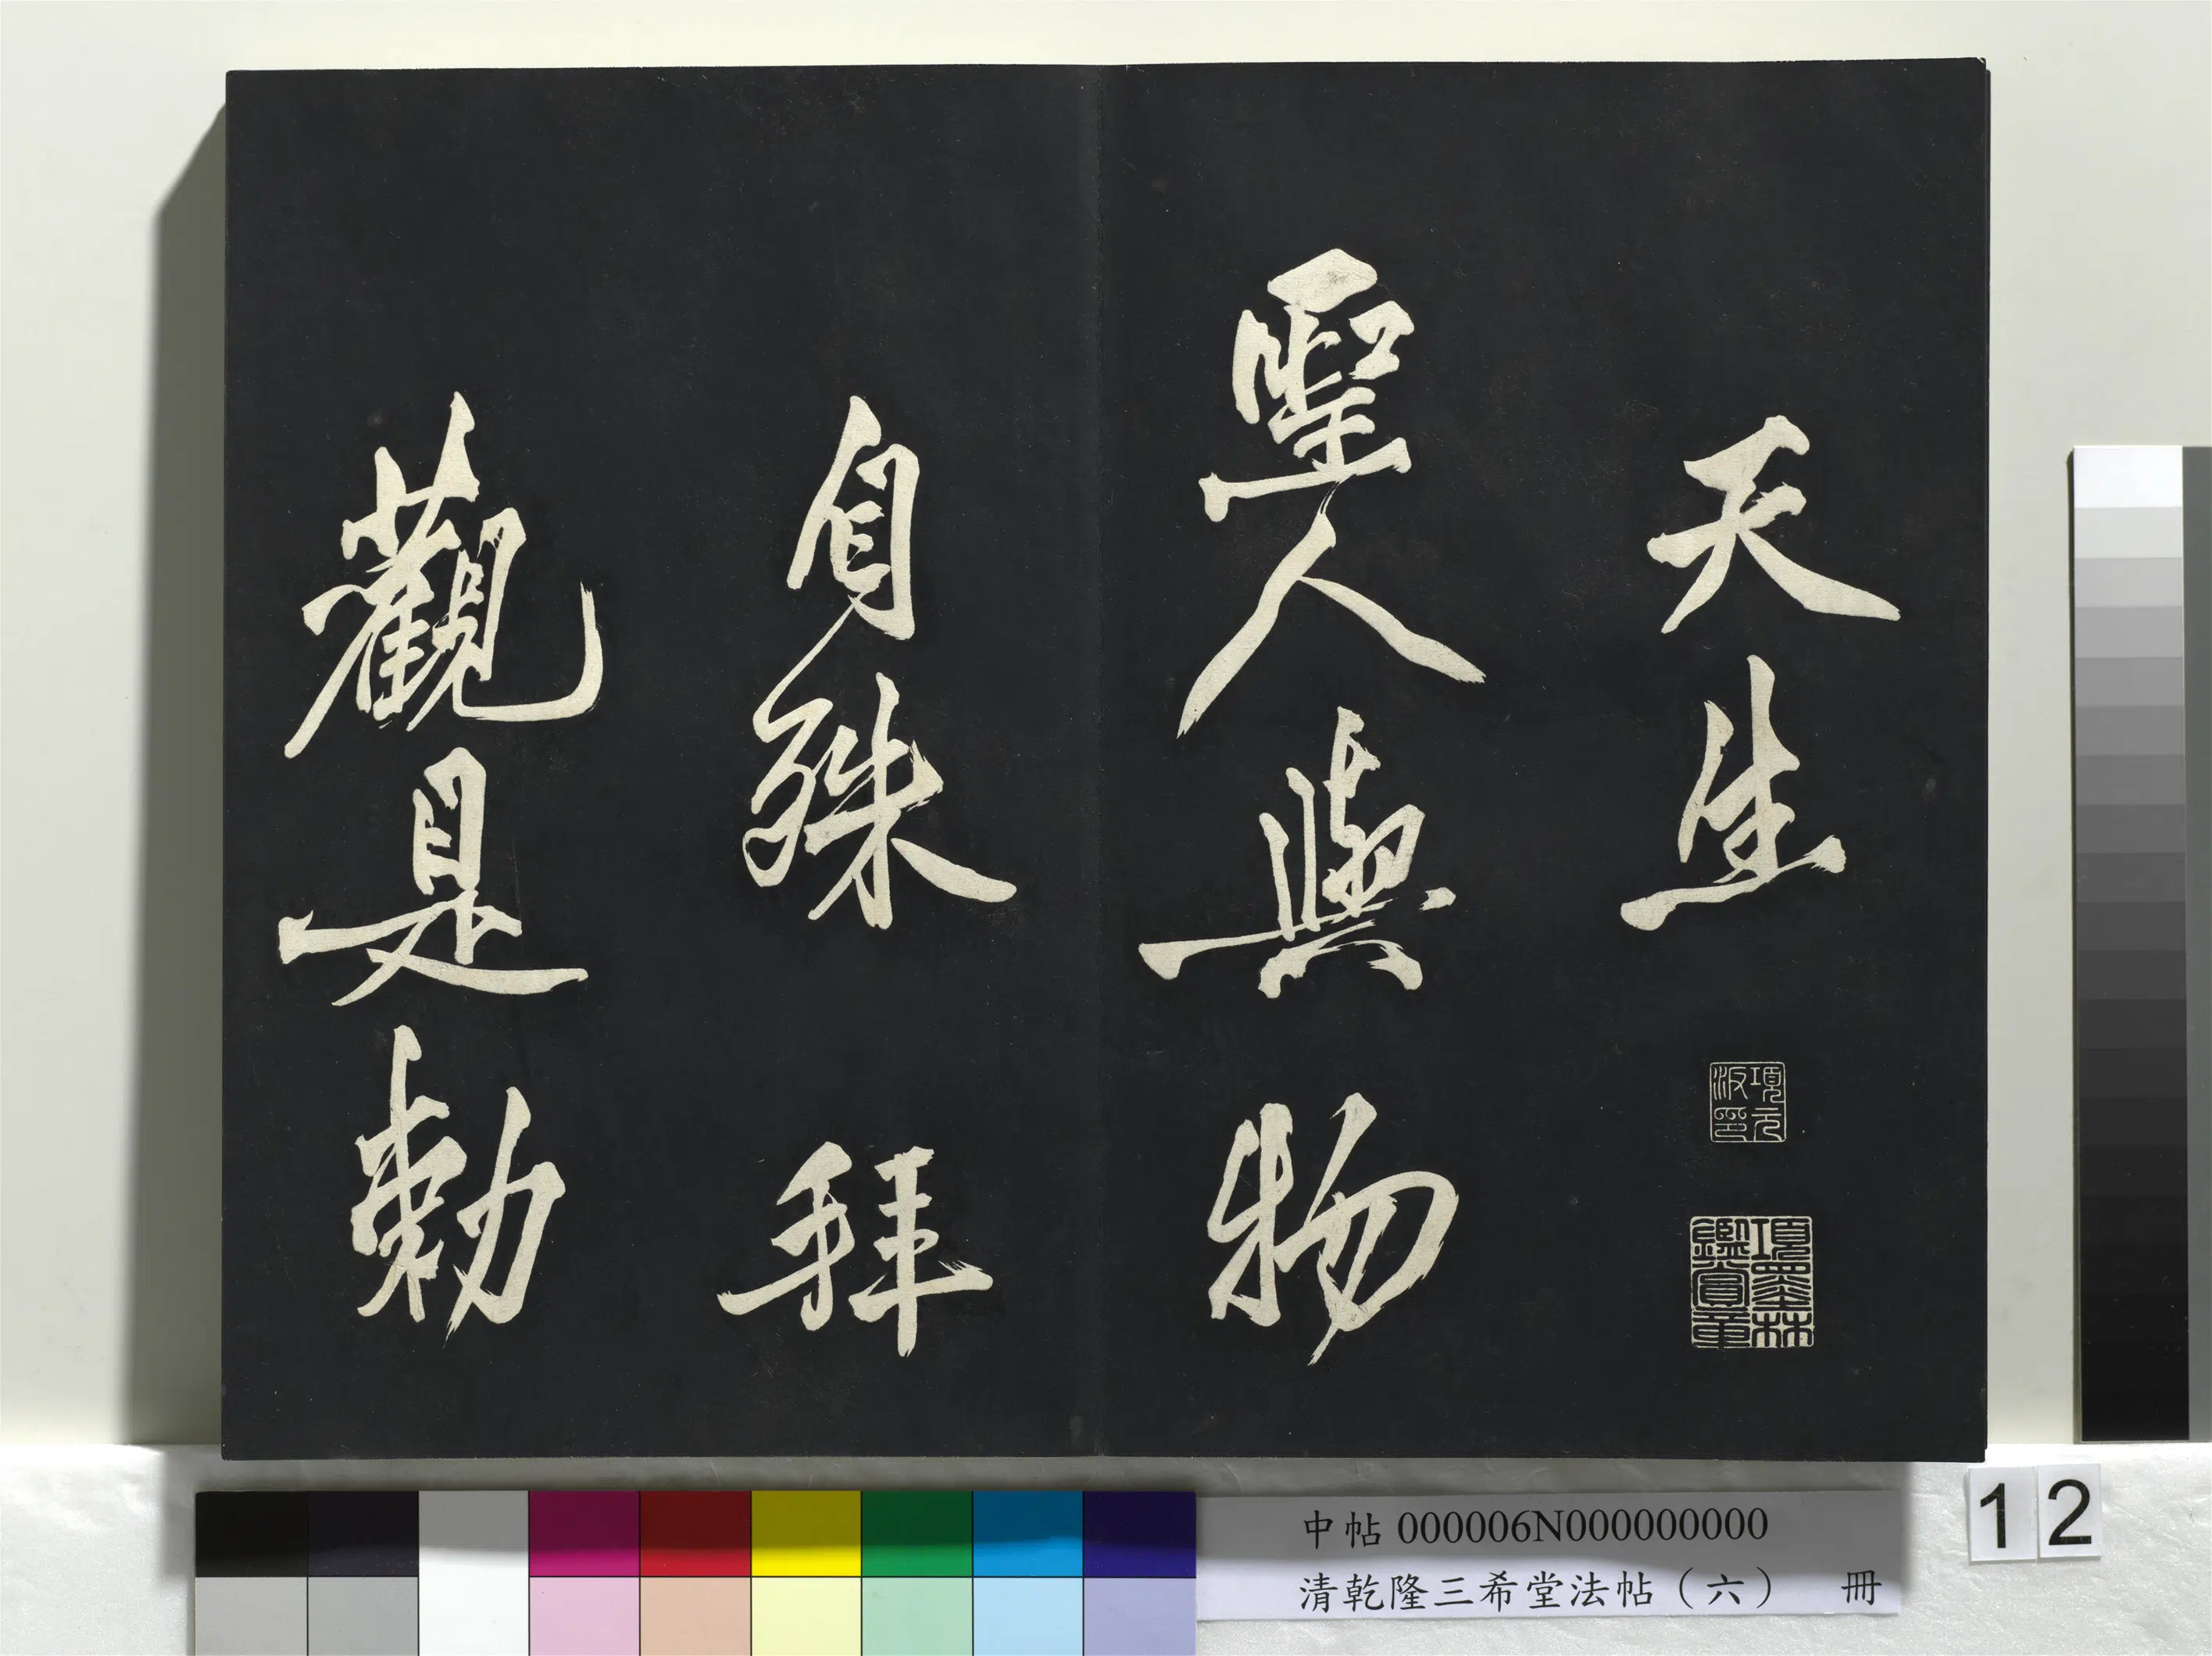 天生
聖人與物
自殊拜
觀是勑
項元汴印
項墨林鑑賞章
中帖 000006N000000000
清乾隆三希堂法帖（六） 冊
12